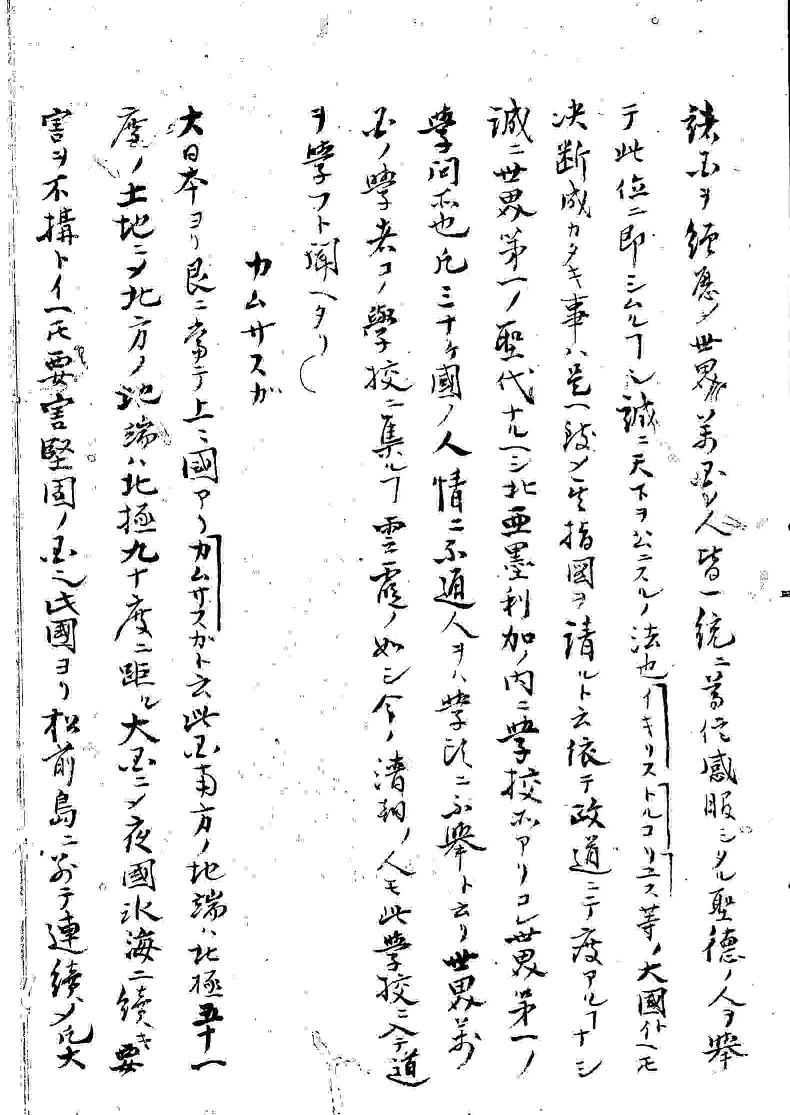 諸国ヲ経歴〆世界万国ノ人皆一統ニ尊信感服シタル聖徳ノ人ヲ挙
テ此位ニ即シムルヿシ誠ニ天下ヲ公ニスルノ法也イキリストルコリユス等ノ大國ト云ヘ𪜈
决断成カタキ事ハ是ヘ致〆其指図ヲ請ルト云依テ政道ニテ度アルヿナシ
誠ニ世界第一ノ聖代ナルヘシ北亜墨利加ノ内ニ學校所アリコレ世界第一ノ
學問所也凡三十ヶ國ノ人情ニ不通人ヲハ學頭ニ不挙ト云リ世界万
国ノ學者コノ學校ニ集ルヿ雲霞ノ如シ今ノ清朝ノ人モ此學校ニ入テ道
ヲ學フト聞ヘタリ
カムサスガ
大日本ヨリ艮ニ當テ上ミ國アリカムサスガト云此国南方ノ地端ハ北極五十一
度ノ土地ニ〆北方ノ地端ハ北極九十度ニ距ル大国ニ〆夜國氷海ニ續キ要
害ヲ不搆トイヘ𪜈要害堅固ノ国也此國ヨリ松前島ニ
テ連續〆凡大